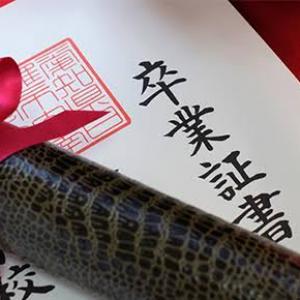 卒業証書
校